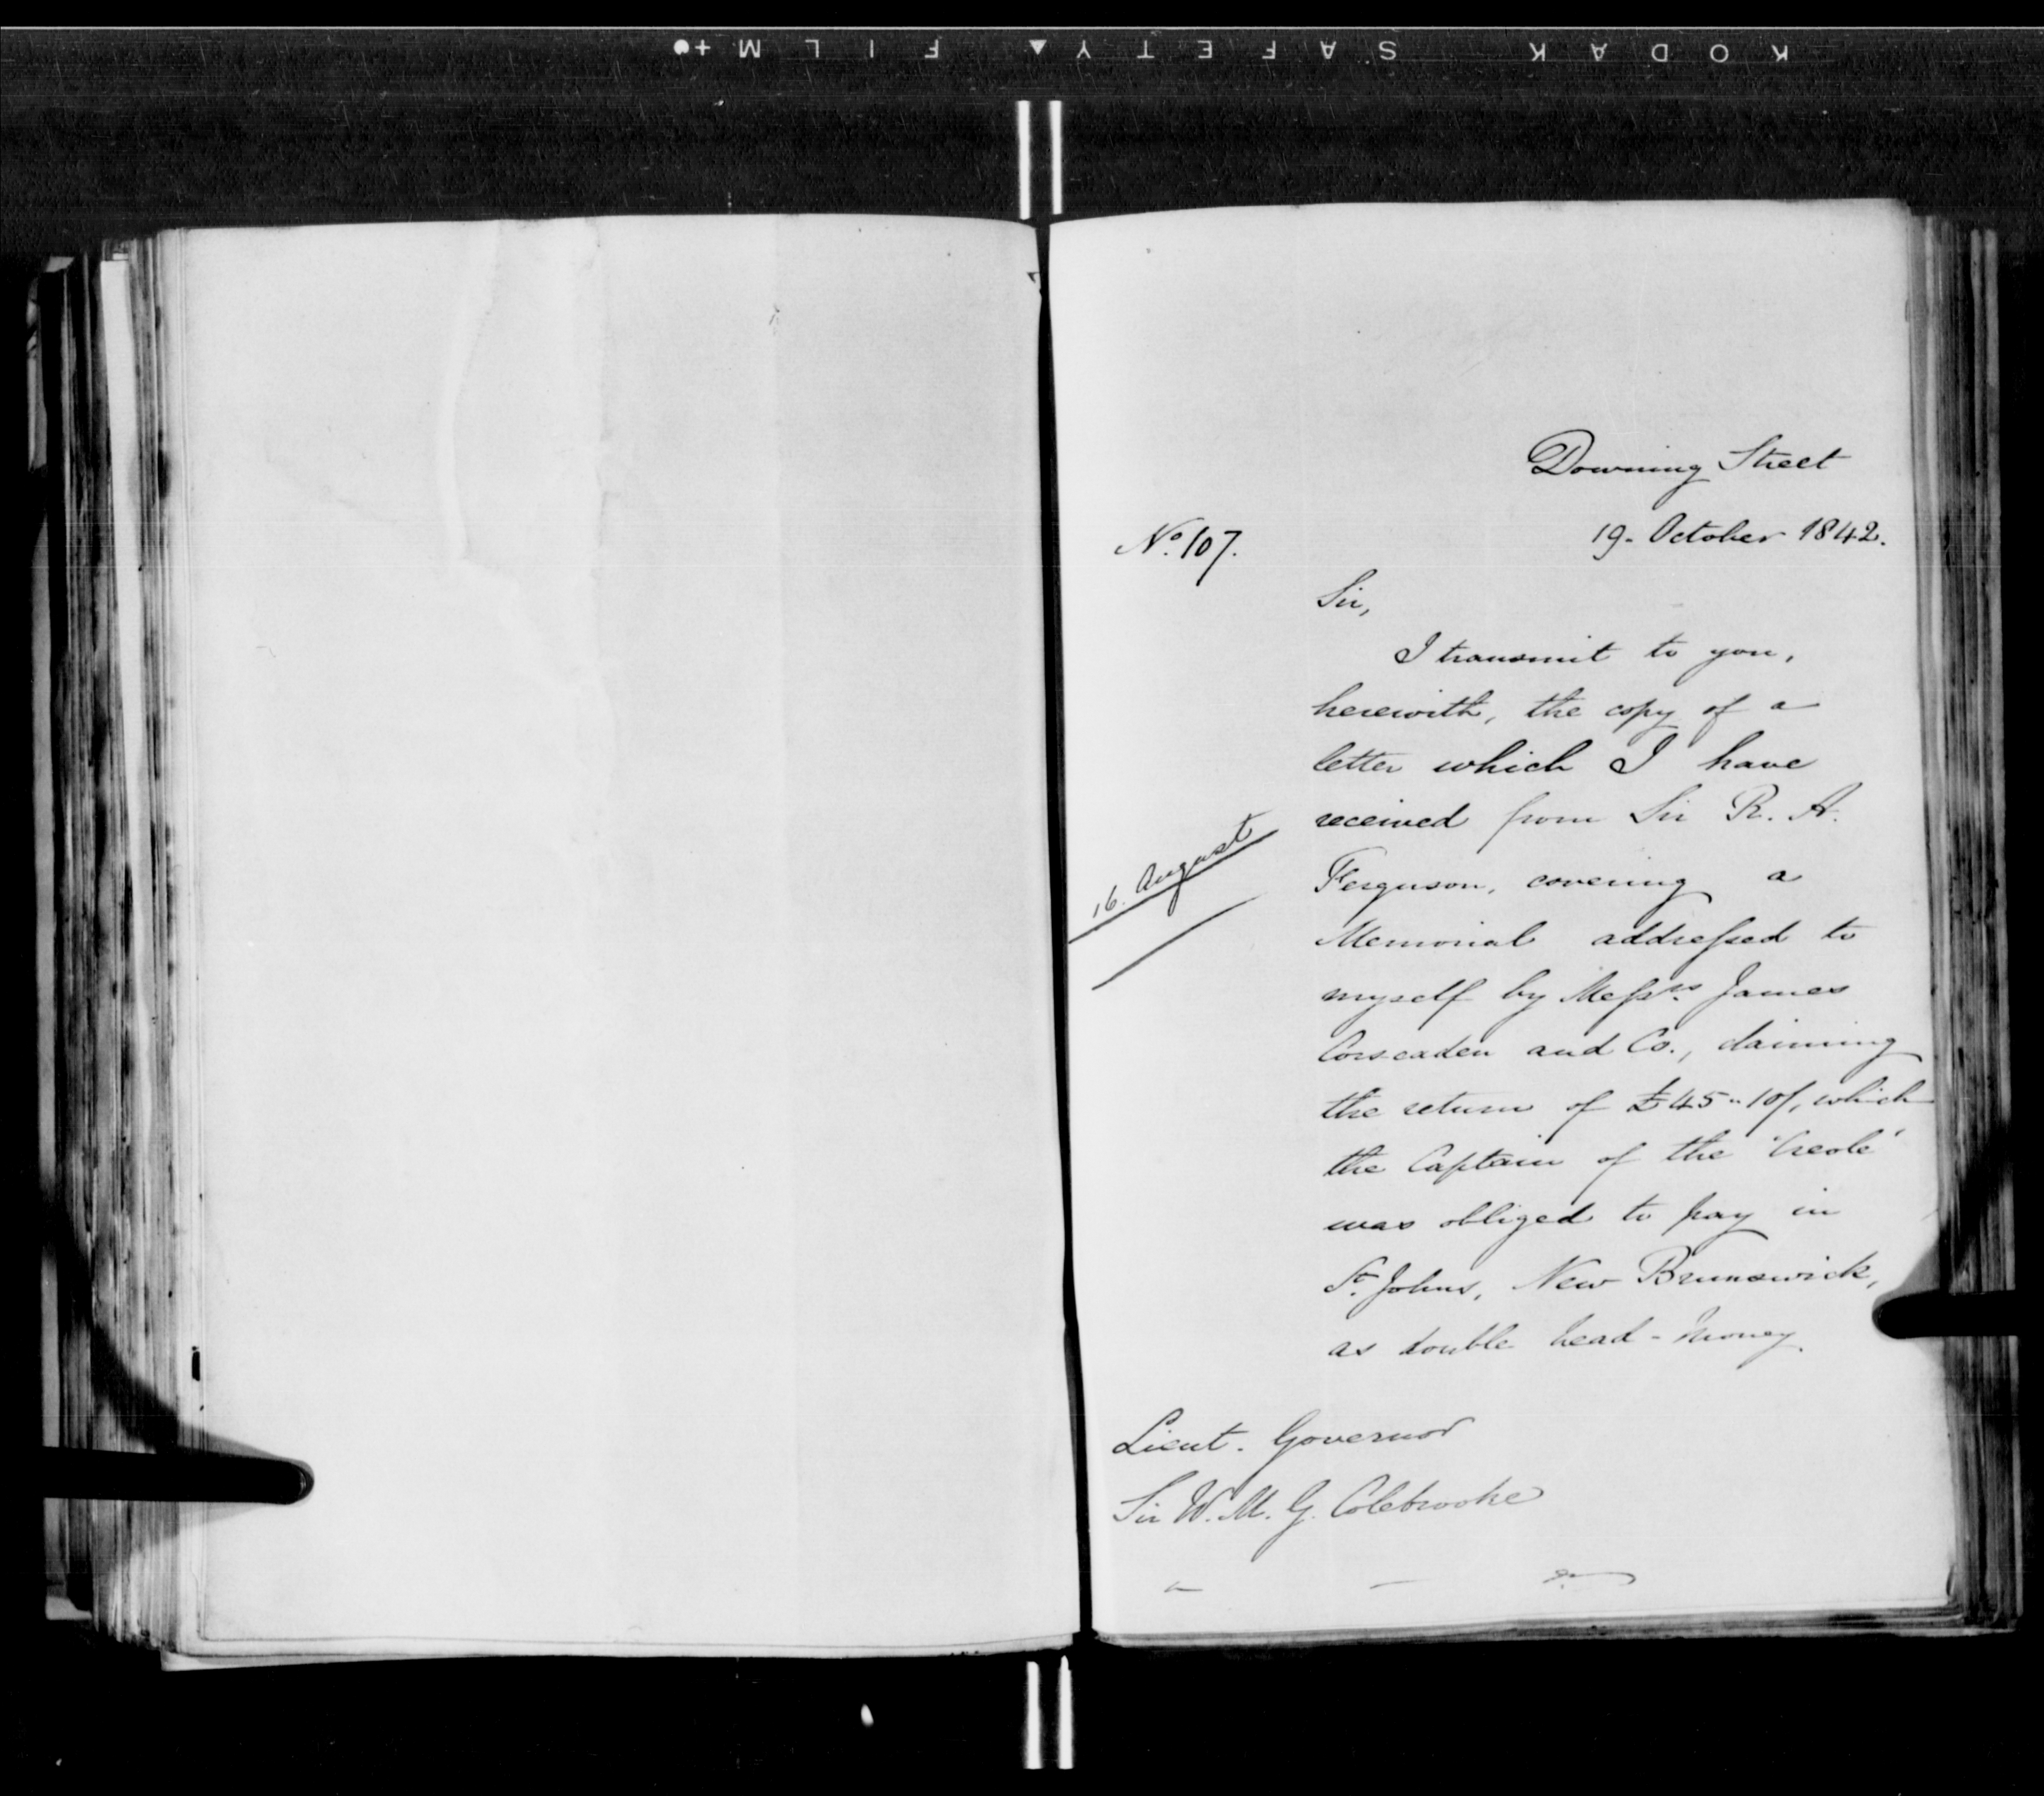 KODAK SAFETY FILM
Downing Street
No. 107.
19. October 1842.
Sir,
I transmit to you,
herewith, the copy of a
letter which I have
received from Sir R. A.
16. August
Ferguson, covering a
Memorial addressed to
myself by Messrs. James
Corscaden and Co., claiming
the return of £45"10/, which
the Captain of the "Creole"
was obliged to pay in
St. Johns, New Brunswick,
as double head-money.
Lieut. Governor
Sir W. M. G. Colebrooke